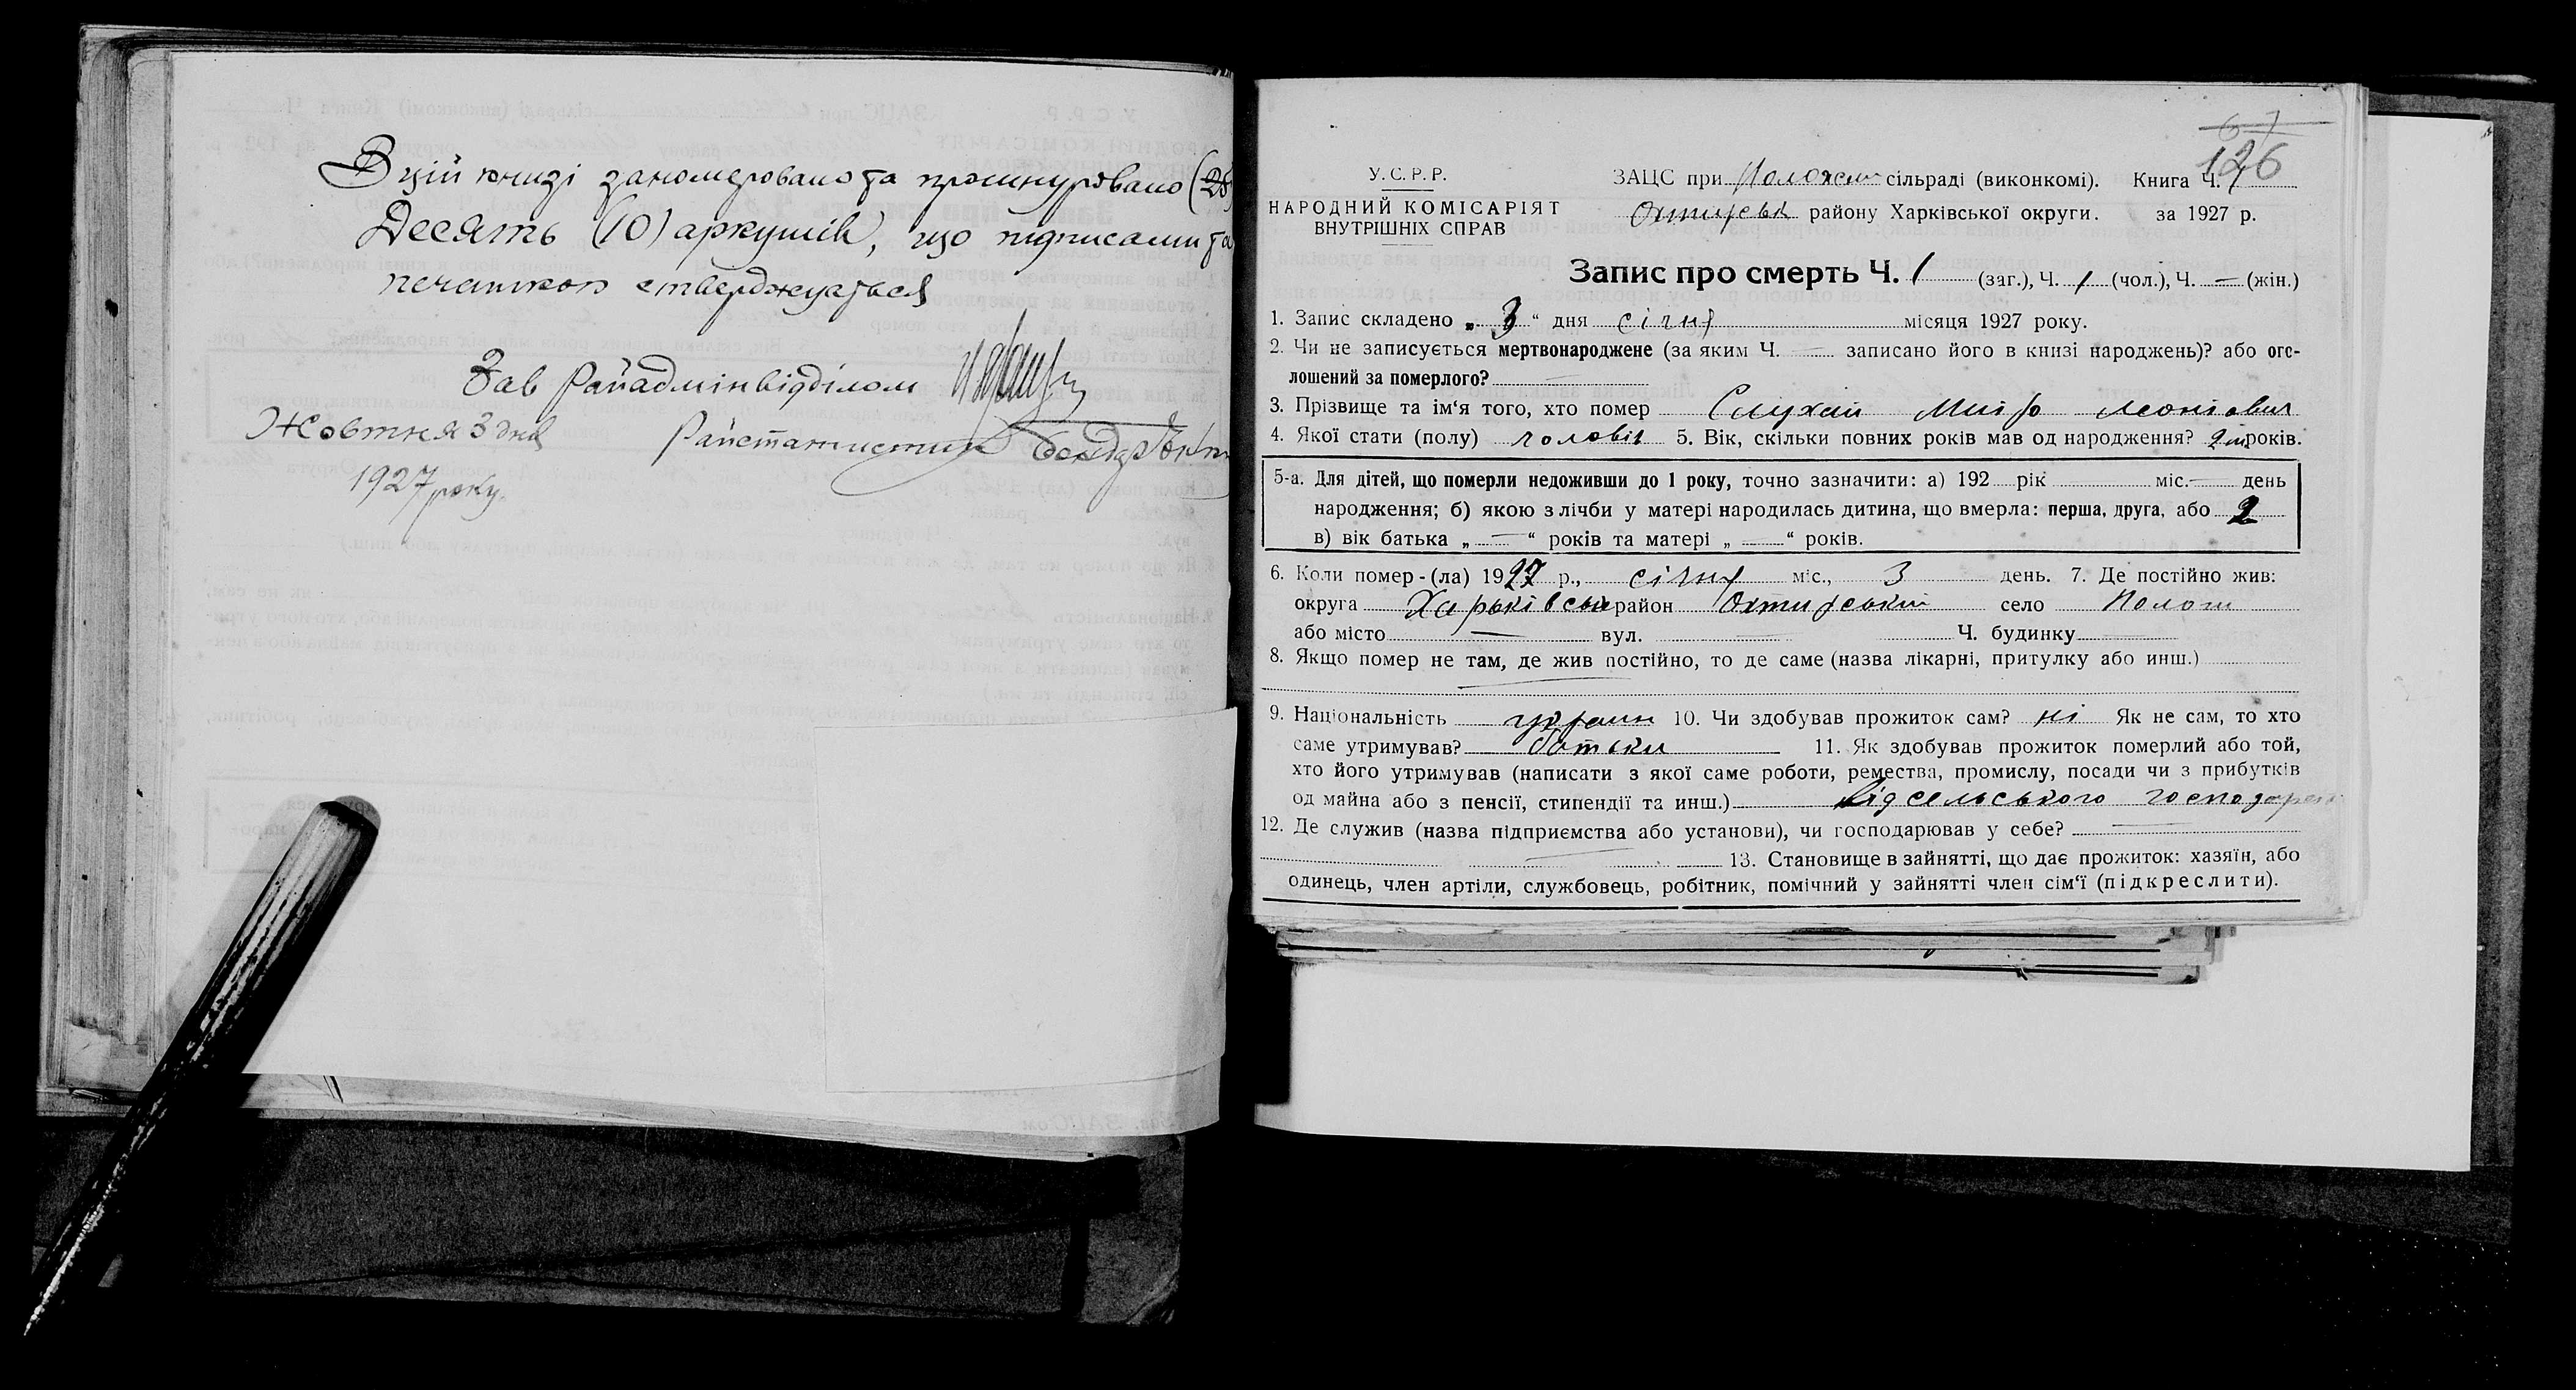 В цій книзі заномеровано та прошнуровано (28)
Десять (10) аркушів, що підписами та
печаткою стверджується
Зав Райадмінвідділом
Жовтня 3 дня
Райстатистик
1927 року.
67
126
У.С.Р.Р.
НАРОДНИЙ КОМІСАРІЯТ
ВНУТРІШНІХ СПРАВ
ЗАЦС при сільраді (виконкомі). Книга Ч. 1
Охтирськ району Харківської округи. за 1927 р.
Запис про смерть Ч. 1 (заг.), Ч. 1 (чол.), Ч. — (жін.)
1. Запис складено „ 3 “ дня січня місяця 1927 року.
2. Чи не записується мертвонароджене (за яким Ч. — записано його в книзі народжень)? або ого-
лошений за померлого? —
3. Прізвище та ім‘я того, хто помер Слухай
4. Якої стати (полу) чоловіч 5. Вік, скільки повних років мав од народження? 2 років.
5-а. Для дітей, що померли недоживши до 1 року, точно зазначити: а) 192 рік міс. — день
народження; б) якою з лічби у матері народилась дитина, що вмерла: перша, друга, або 2
в) вік батька „ — “ років та матері „ — “ років.
6. Коли помер-(ла) 1927 р., січня міс., 3 день. 7. Де постійно жив:
округа Харьківська район Охтирський село
або місто — вул. — Ч. будинку —
8. Якщо помер не там, де жив постійно, то де саме (назва лікарні, притулку або инш.)
—
9. Національність україн 10. Чи здобував прожиток сам? ні Як не сам, то хто
саме утримував? батьки 11. Як здобував прожиток померлий або той,
хто його утримував (написати з якої саме роботи, ремества, промислу, посади чи з прибутків
од майна або з пенсії, стипендії та инш.) від сельського господарст
12. Де служив (назва підприємства або установи), чи господарював у себе? —
— 13. Становище в зайнятті, що дає прожиток: хазяїн, або
одинець, член артіли, службовець, робітник, помічний у зайнятті член сім‘ї (підкреслити).